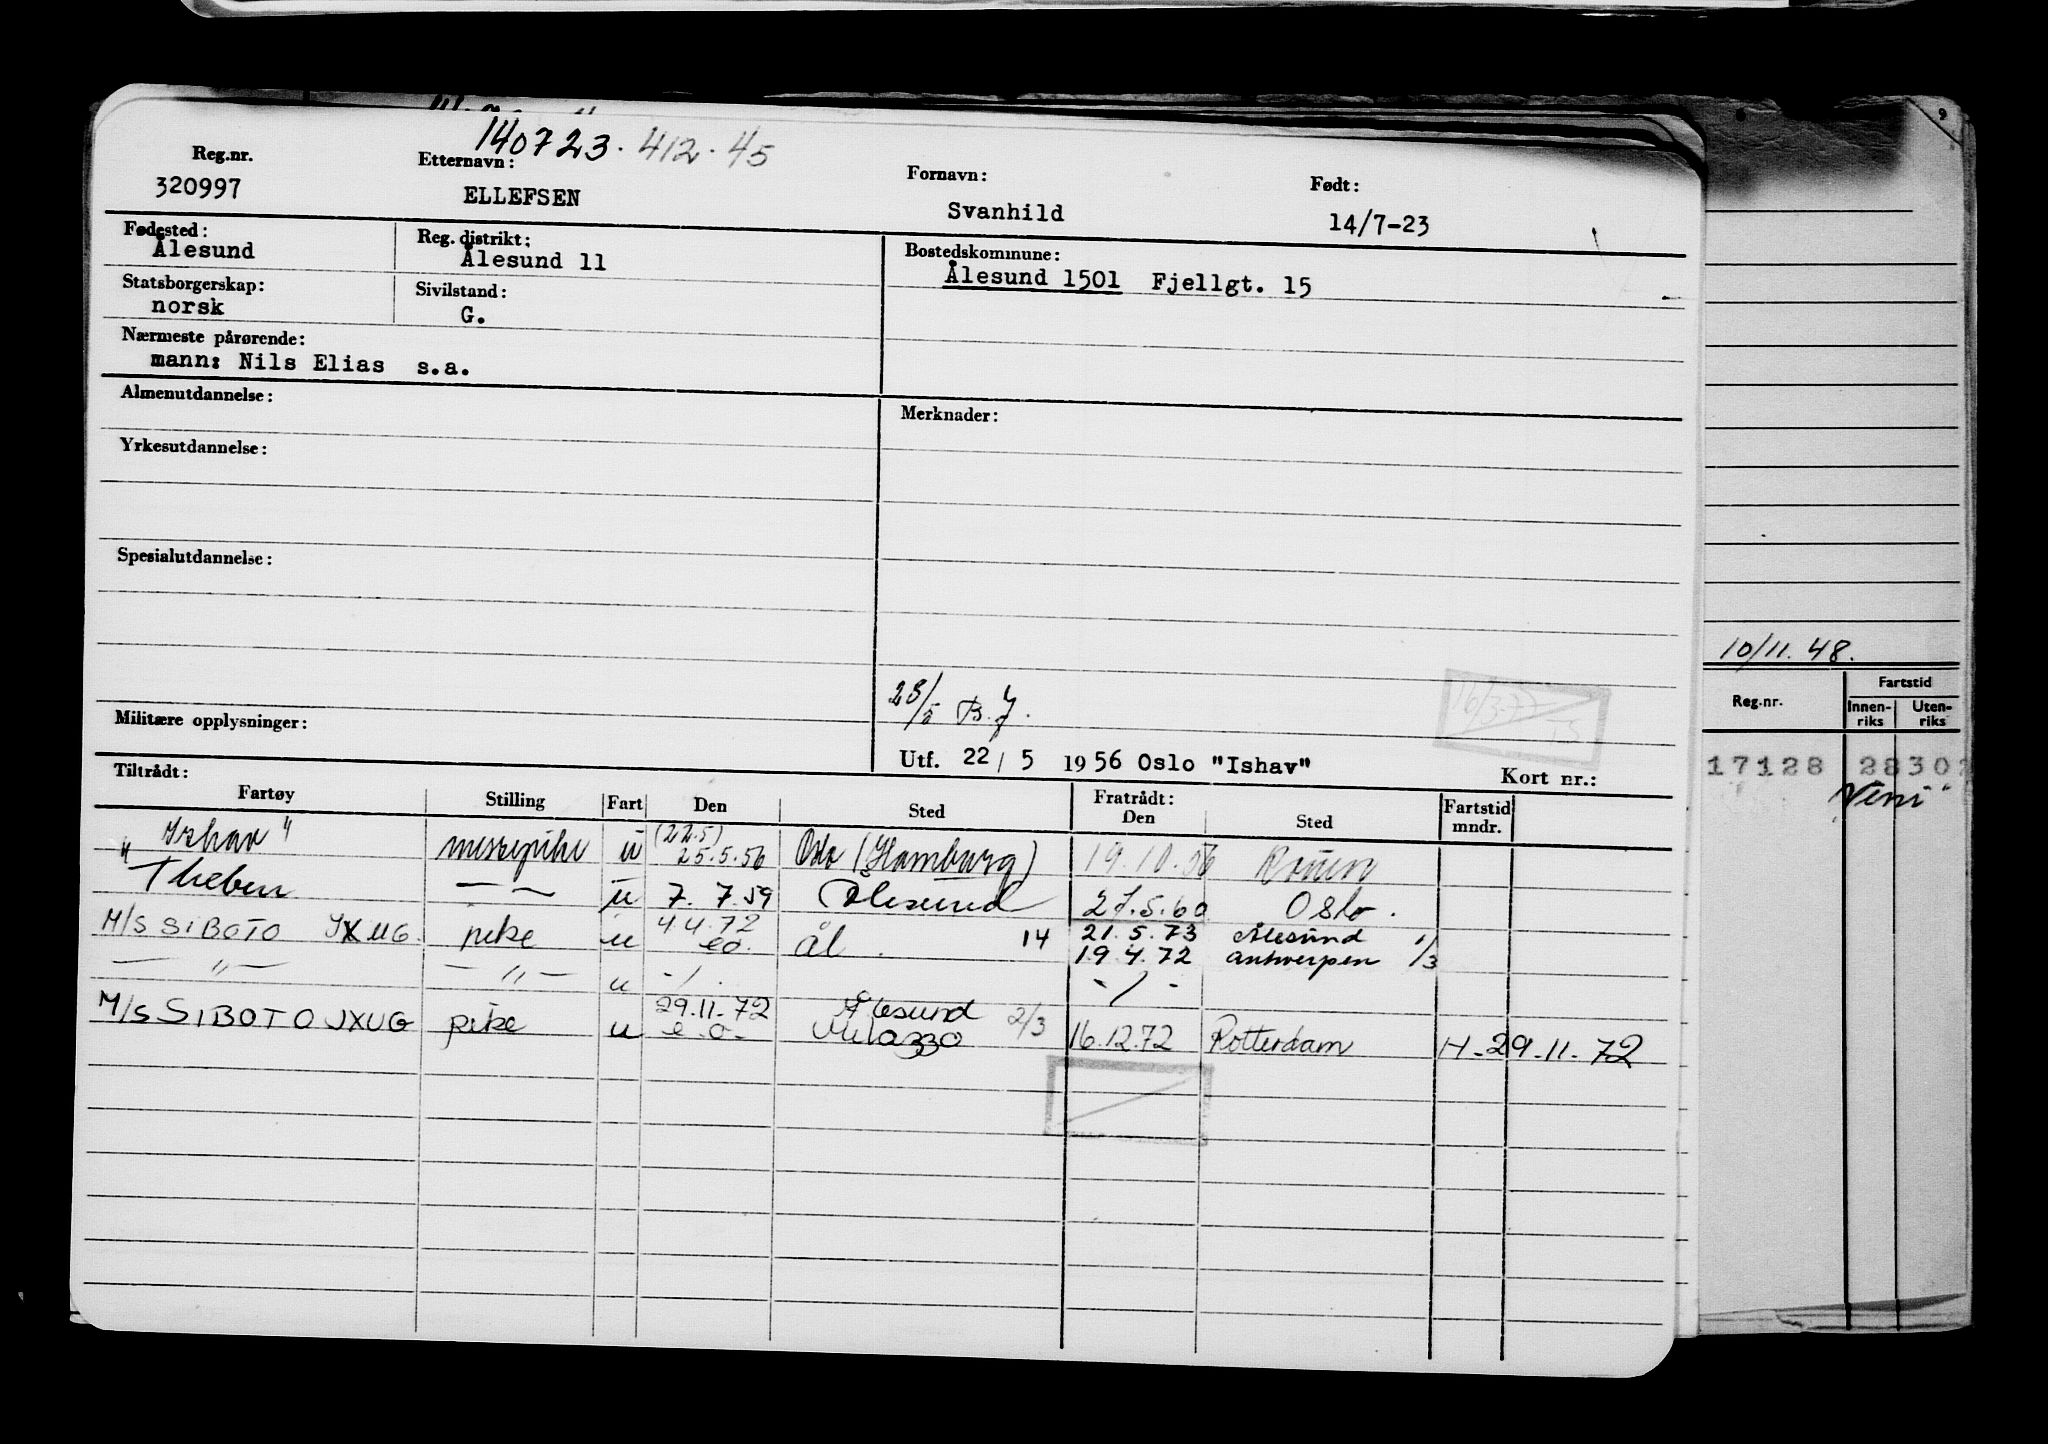 140723. 412. 45
Reg.nr. Etternavn: Fornavn: Født:
320997 ELLEFSEN Svanhild 14/7-23
Fødested: Reg. distrikt: Bostedskommune:
Ålesund Ålesund 11 Ålesund 1501 Fjellgt. 15
Statsborgerskap: Sivilstand:
norsk G.
Nærmeste pårørende:
mann: Nils Elias s.a.
Almenutdannelse: Merknader:
Yrkesutdannelse:
Spesialutdannelse:
Militære opplysninger:
Utf. 22/5 1956 Oslo "Ishav" Kort nr.:
Tiltrådt: Fratrådt:
Fartøy Stilling Fart Den Sted Den Sted Fartstid mndr.
"Ishav" messepike u (22.5) 25.5.56 Oslo (Hamburg) 19.10.56 Rouen
Theben — — u 7.7.59 Ålesund 27.5.60 Oslo.
M/S SIBOTO JXUG. pike u 4.4.72 eo. Ål. 14 21.5.73 Ålesund
19.4.72 Antwerpen 1/3
— " — — " — u - / - - / -
M/S SIBOTO JXUG pike u 29.11.72 e.o. Ålesund Milazzo 2/3 16.12.72 Rotterdam H-29.11.72
10/11. 48.
Reg.nr. Fartstid
Innenriks Utenriks
17128 2830